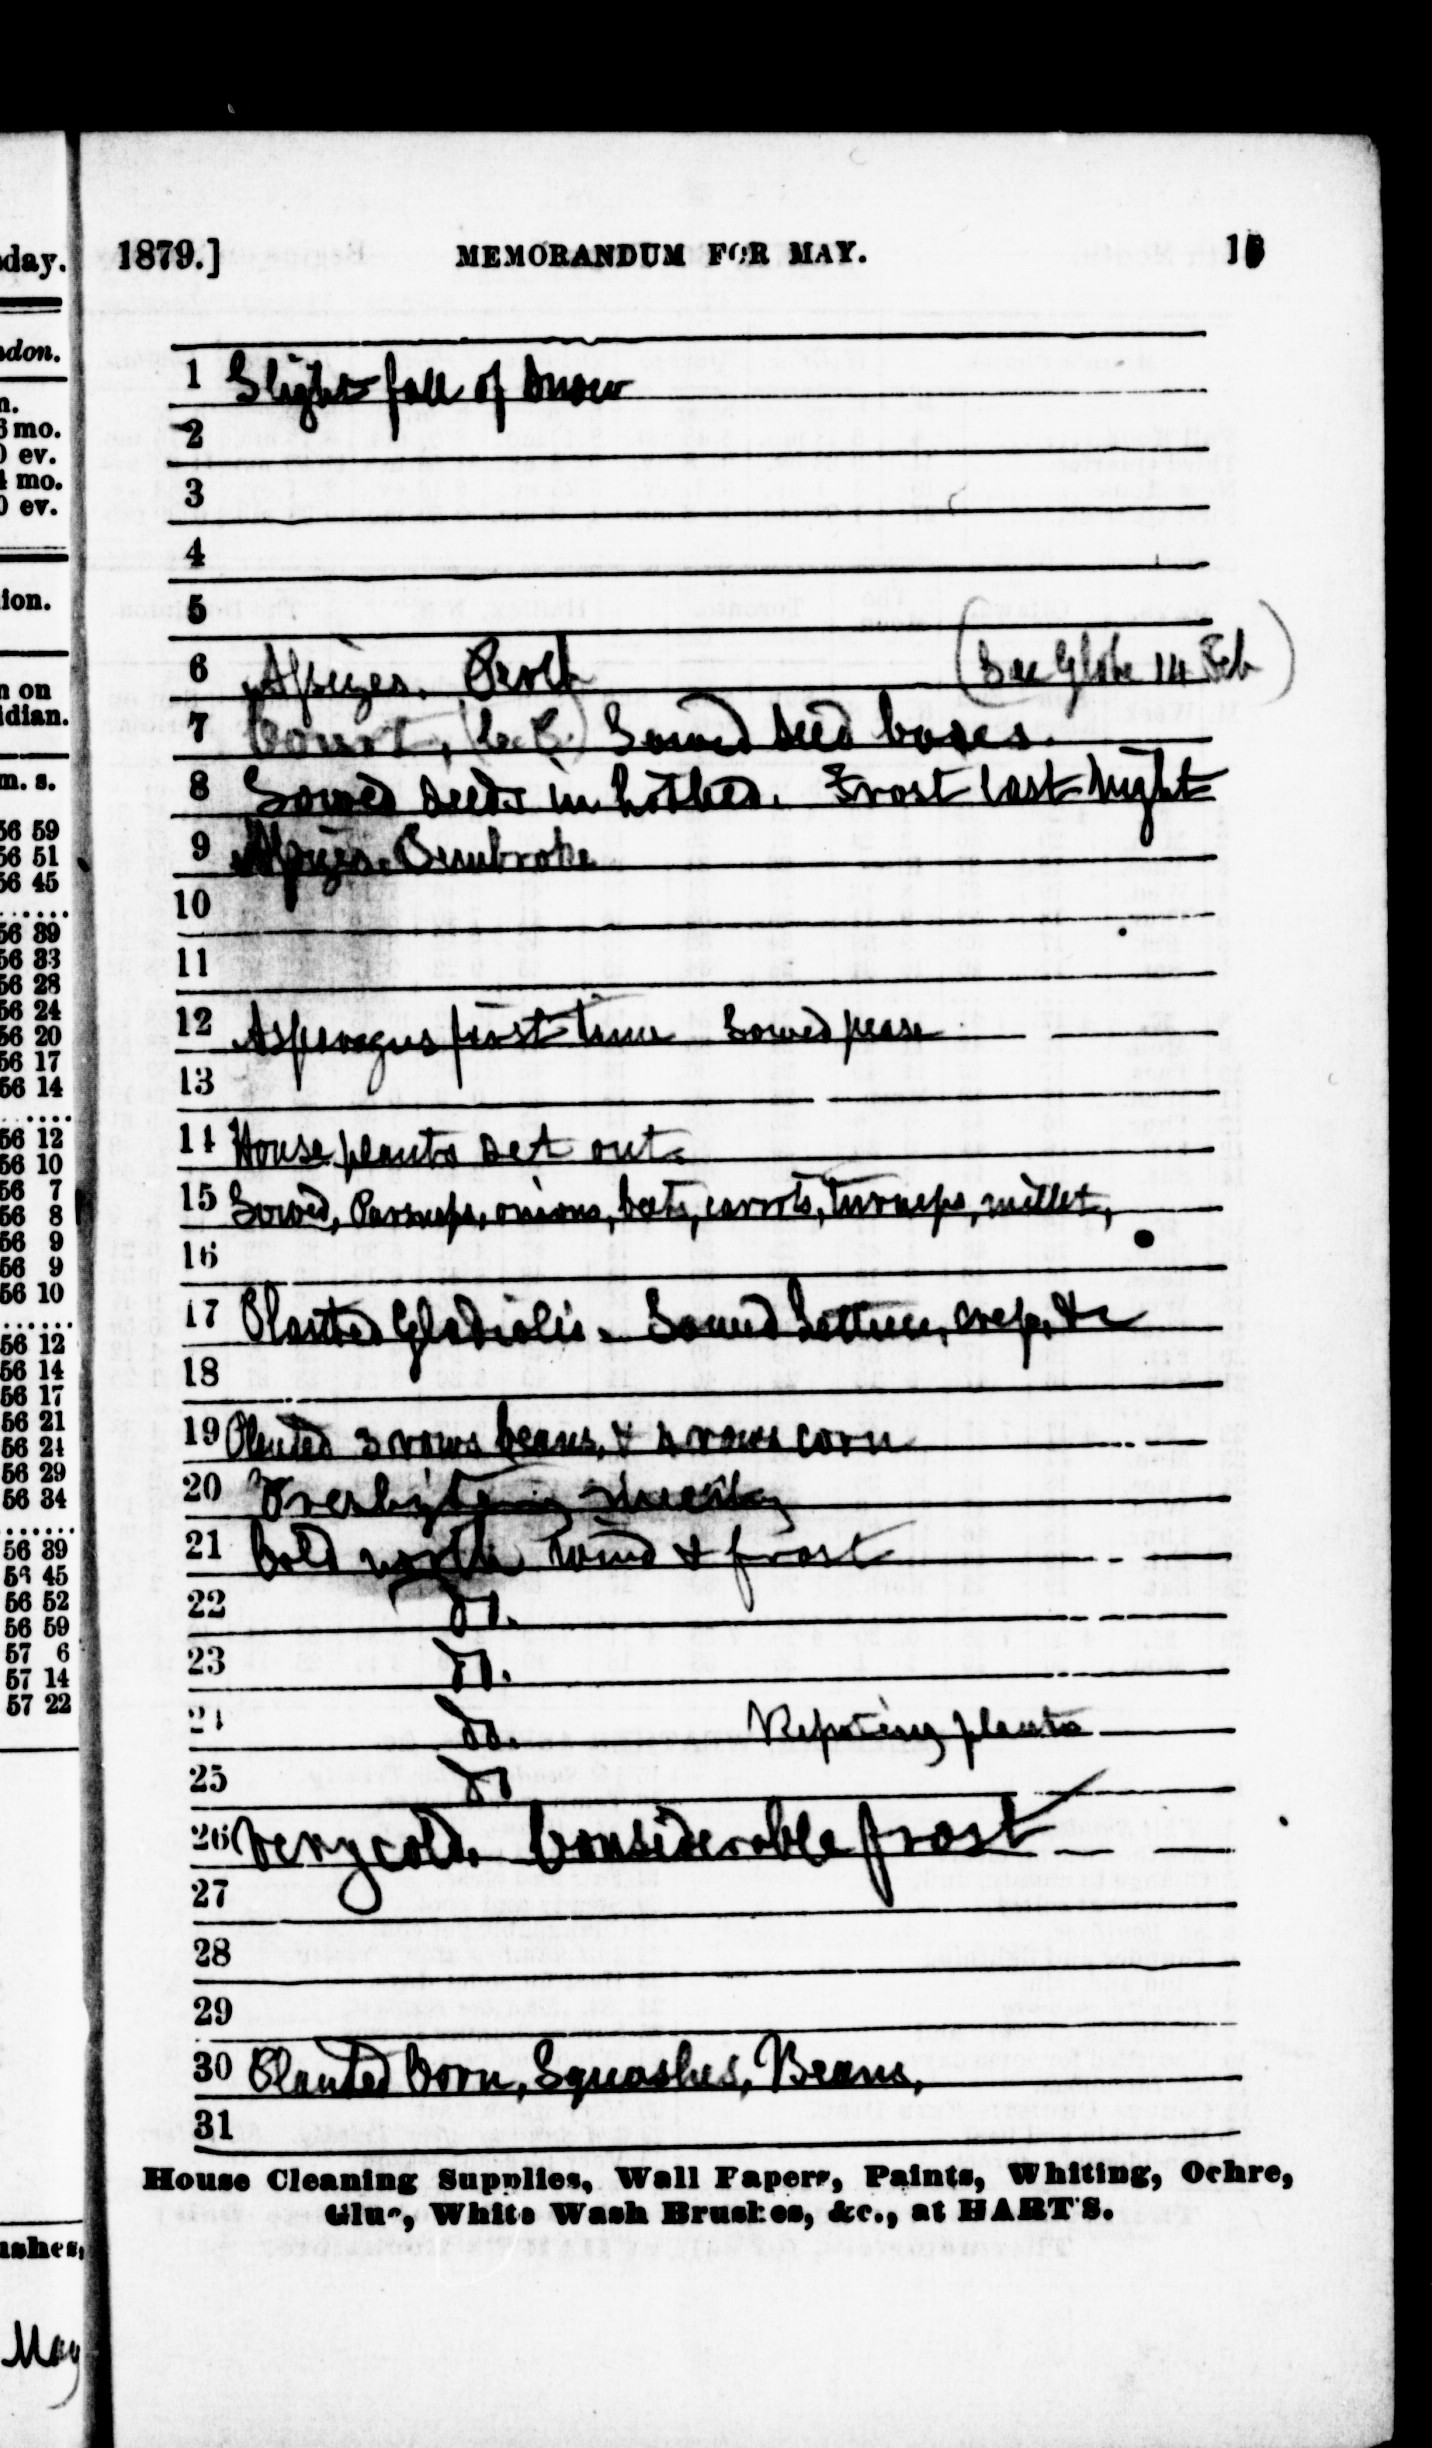 1879.] MEMORANDUM FOR MAY. 15
1 Slight fall of snow
2
3
4
5
6 Assizes. Perth (See Globe 14 Feb)
7 Court, (C.C.) Sowed seed boxes.
8 Sowed seeds in hotbed. Frost last night
9 Assizes. Pembroke
10
11
12 Asparagus first time Sowed pease
13
14 House plants set out.
15 Sowed, Parsnips, onions, beets, carrots, turneps, millet,
16
17 Planted Gladiolii. Sowed Lettuce, &c
18
19 Planted 3 rows beans, & 4 rows corn
20 Presbytery meets
21 Cold north wind & frost
22 do.
23 do.
24 do. Repoting plants
25 do
26 Very cold. Considerable frost
27
28
29
30 Planted Corn, Squashes, Beans,
31
House Cleaning Supplies, Wall Papers, Paints, Whiting, Ochre,
Glue, White Wash Brushes, &c., at HART'S.
day.
don.
n.
6 mo.
0 ev.
4 mo.
0 ev.
ion.
n on
idian.
m. s.
56 59
56 51
56 45
56 39
56 33
56 28
56 24
56 20
56 17
56 14
56 12
56 10
56 7
56 8
56 9
56 9
56 10
56 12
56 14
56 17
56 21
56 24
56 29
56 34
56 39
56 45
56 52
56 59
57 6
57 14
57 22
ushes,
May